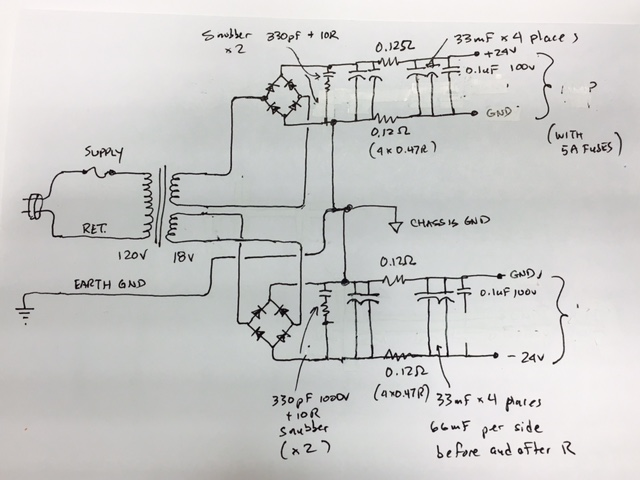 Snubber 330pF + 10R
x2
0.125Ω
33mF x 4 places
+24V
0.1uF 100V
?
GND
0.12Ω
(4x0.47R)
(WITH
5A FUSES)
SUPPLY
RET.
120V
18V
CHASSIS GND
EARTH GND
0.12Ω
GND
0.1uF 100V
-24V
0.12Ω
(4x0.47R)
330pF 1000V
+10R
Snubber
(x2)
33mF x 4 places
66mF per side
before and after R